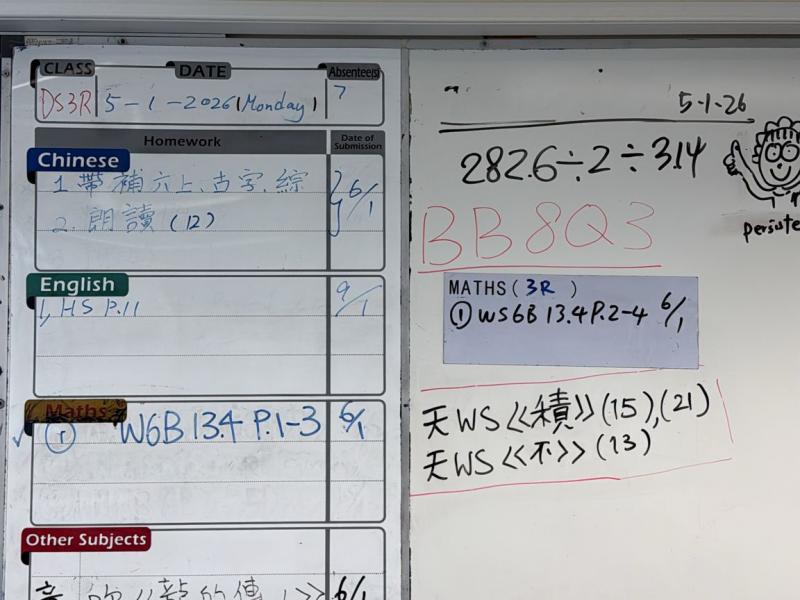 CLASS DATE Absentee(s)
DS3R 5-1-2026 (Monday) 7
Homework Date of Submission
Chinese
1. 帶補六上、古字、綜 6/1
2. 朗讀 (12)
English
1, HS P.11 9/1
Maths
① W6B 13.4 P.1-3 6/1
Other Subjects
《龍的傳人》 6/1
5-1-26
282.6÷2÷3.14
BB8Q3
MATHS( 3R )
① WS6B 13.4 P.2-4 6/1
天WS《積》(15),(21)
天WS《不》(13)